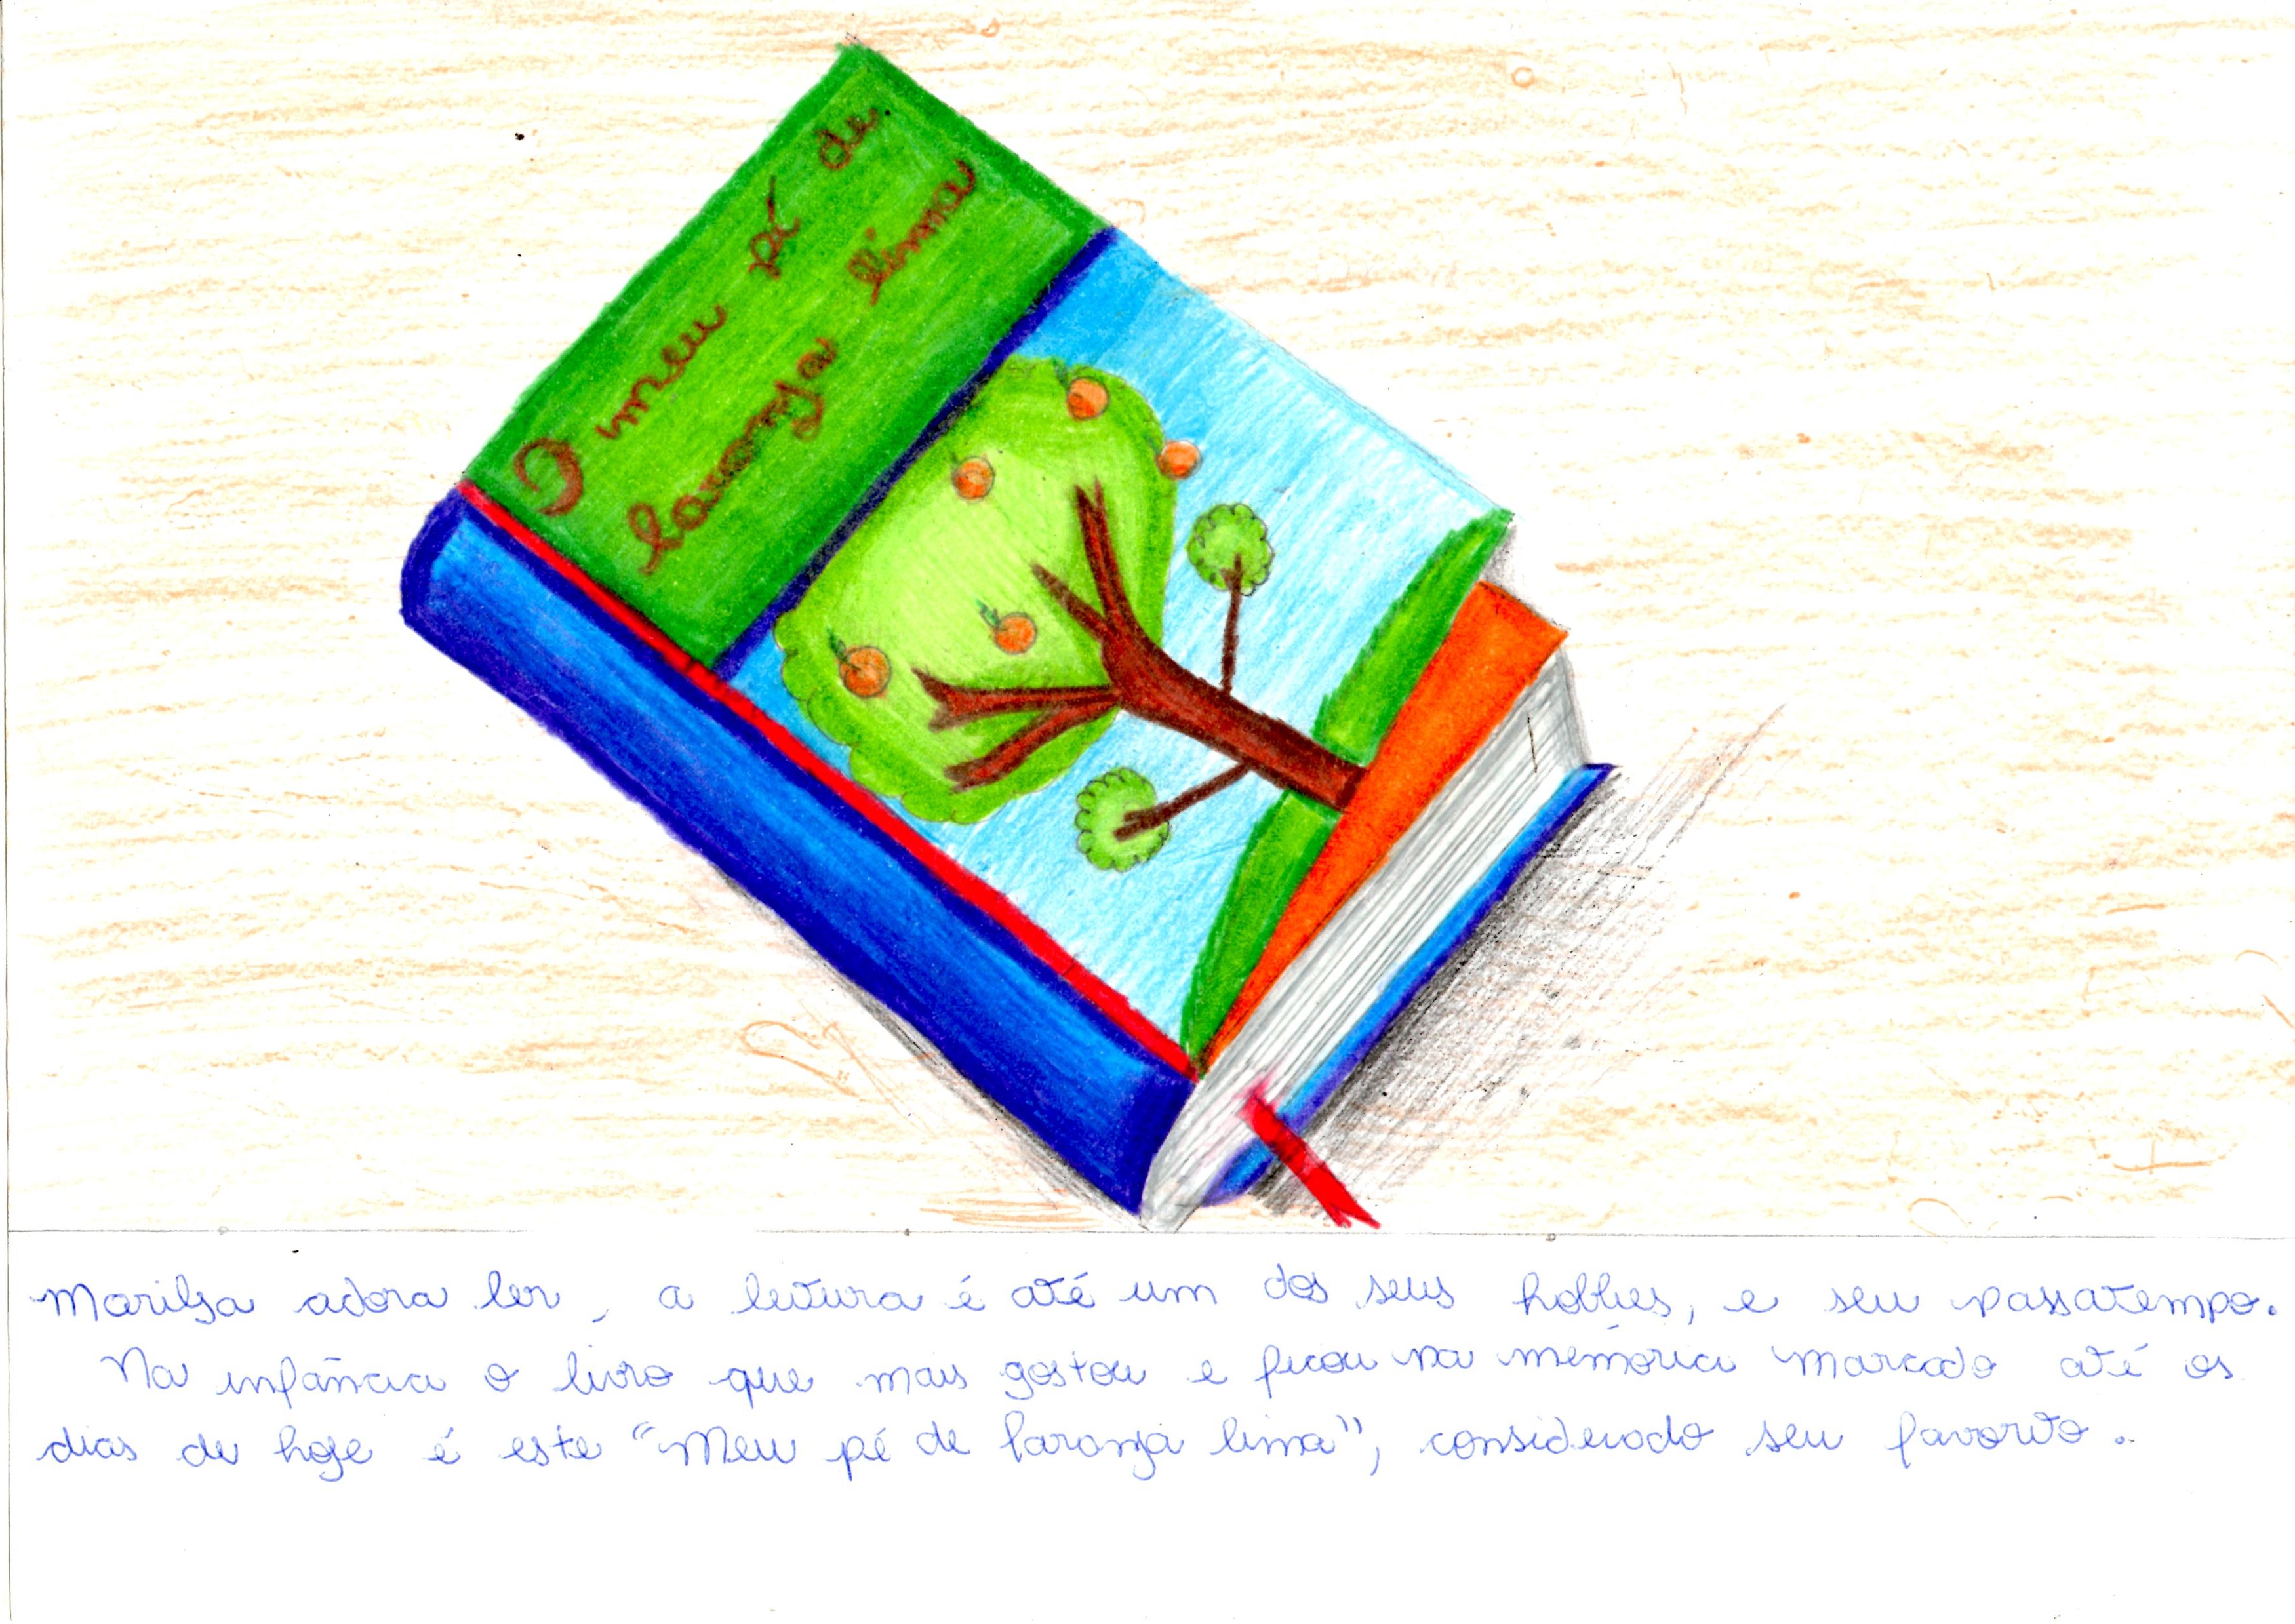 O meu pé de
laranja lima
Marilsa adora ler, a leitura é até um dos seus hobbies, e seu passatempo.
Na infância o livro que mais gostou e ficou na memória marcado até os
dias de hoje é este "Meu pé de laranja lima", considerado seu favorito.